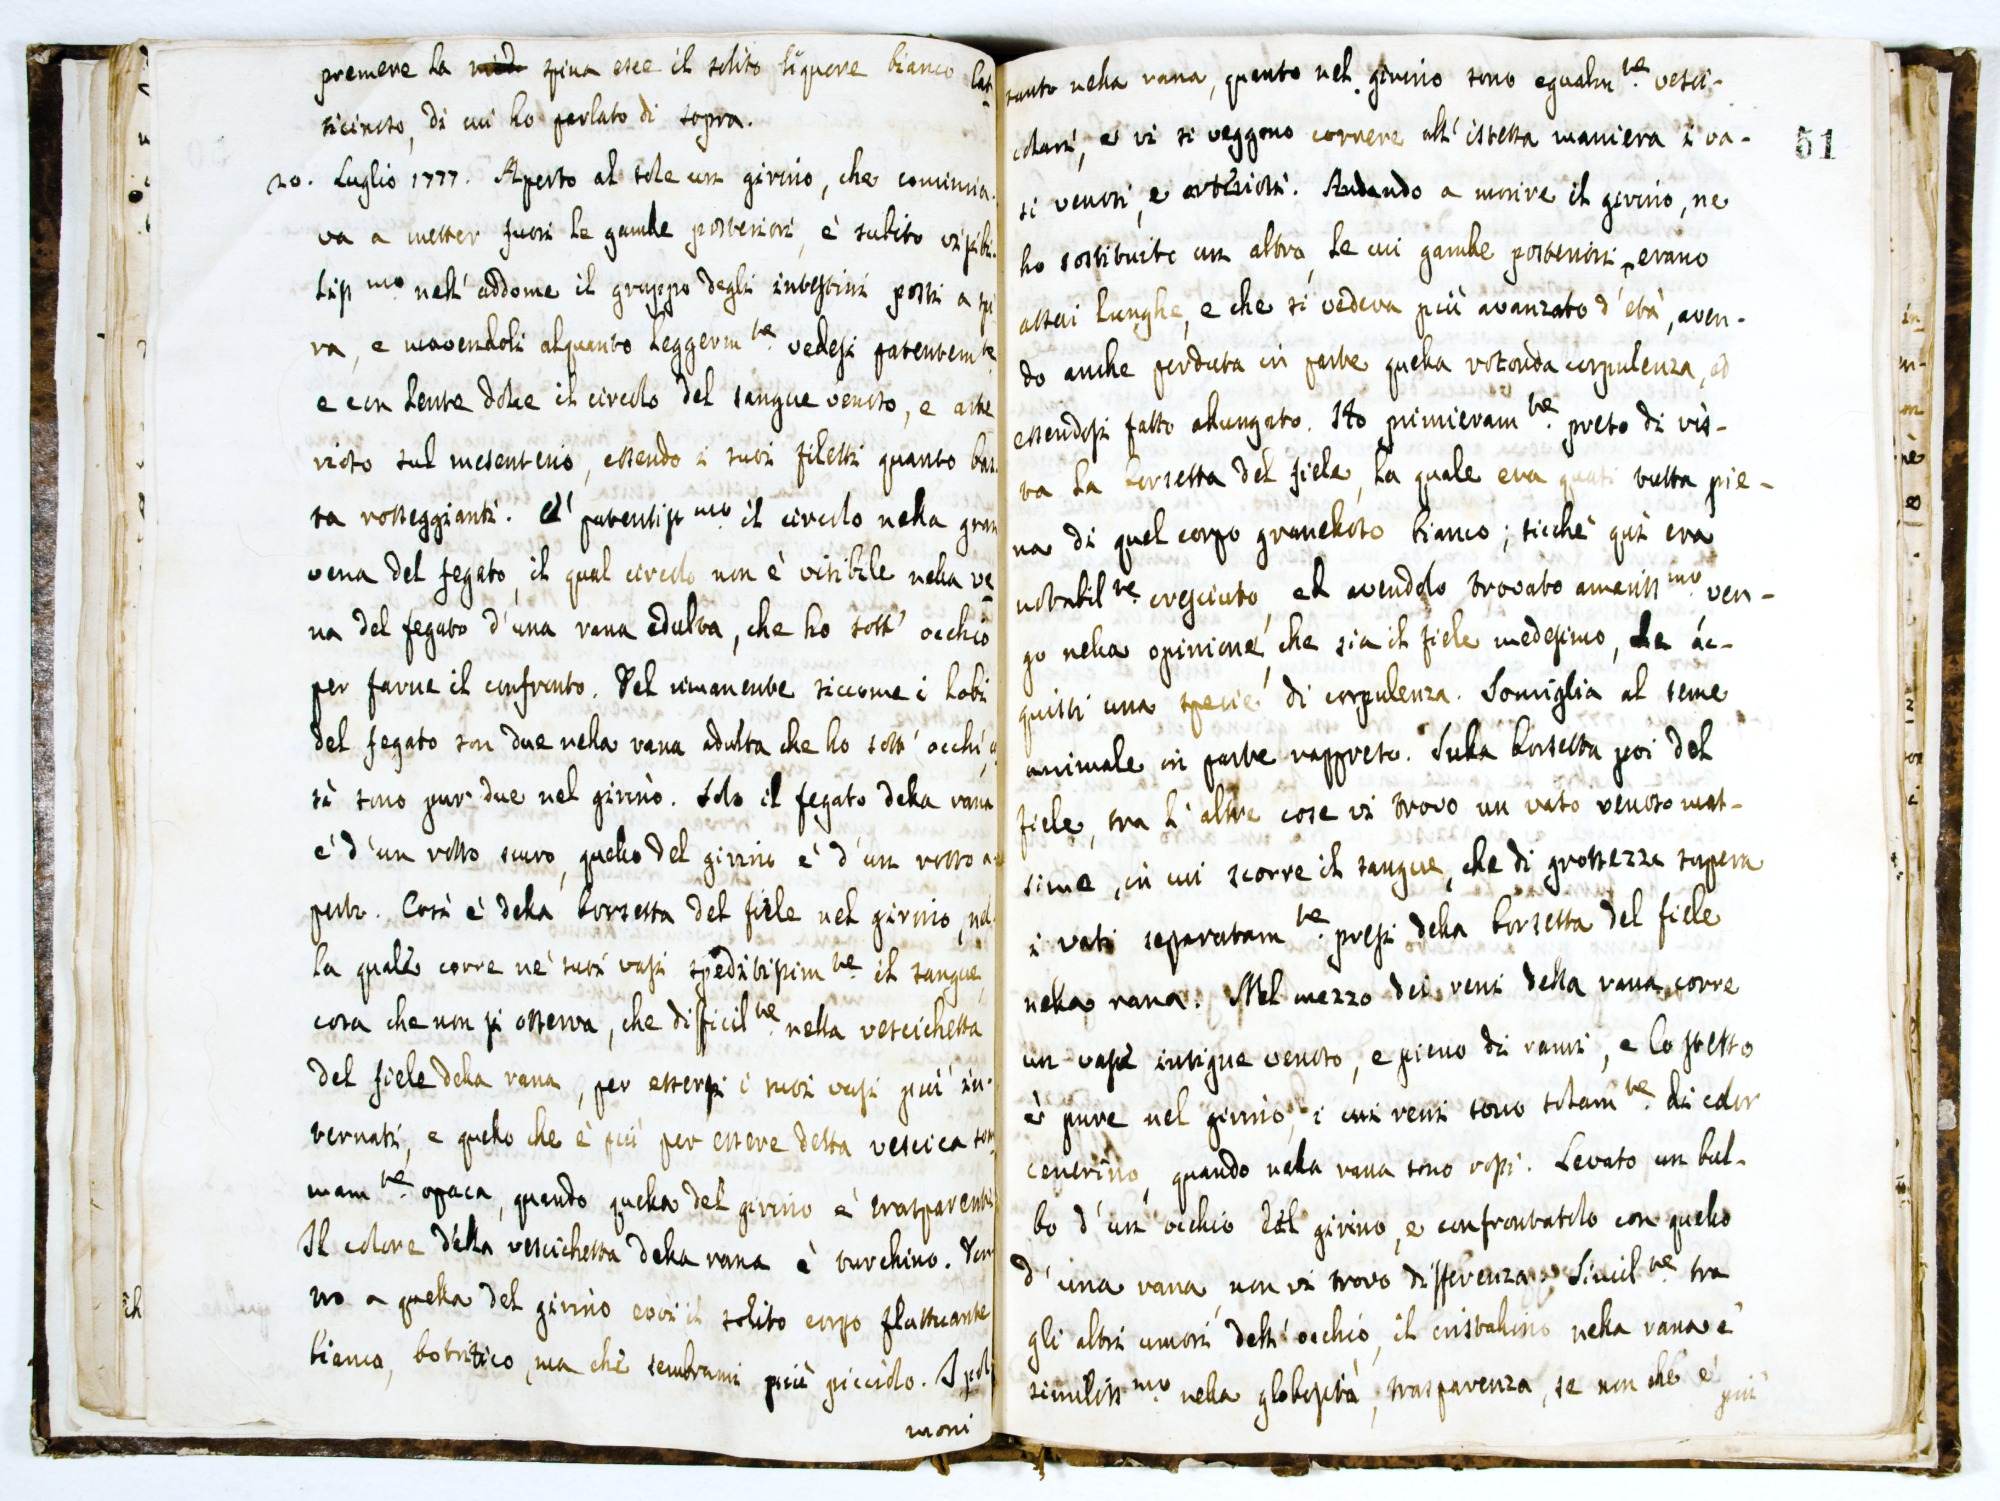 premere la mid spina esce il solito liquore bianco lat
ticinoso, di cui ho parlato di sopra.
20. Luglio 1777. Aperto al sole un girino, che comincia
va a metter fuori le gambe posteriori, è subito visibi
liss.mo nell'addome il gruppo degli intestini posti a spi
ra, e movendoli alquanto leggerm.te vedesi patentem.te
e con lente dolce il circolo del sangue venoso, e arte
rioso sul mesenterio, essendo i suoi filetti quanto bas
ta rosseggianti. E' patentiss.mo il circolo nella gran
vena del fegato, il qual circolo non è visibile nella ve
na del fegato d'una rana adulta, che ho sott'occhio
per farne il confronto. Nel rimanente siccome i lobi
del fegato son due nella rana adulta che ho sott'occhi, co
sì sono pur due nel girino. Solo il fegato della rana
è d'un rosso scuro, quello del girino è d'un rosso a
perto. Così è della borsetta del fiele nel girino, nel
la quale corre ne' suoi vasi speditissim.te il sangue,
cosa che non si osserva, che difficil.te nella vescichetta
del fiele della rana, per essersi i suoi vasi più in
ternati, e quello che è più per essere detta vescica som
mam.te opaca, quando quella del girino è trasparente
Il colore della vescichetta della rana è turchino. Vici
no a quella del girino evvi il solito corpo fluttuante
bianco, botritico, ma che sembrami più picciolo. I pol
moni
tanto nella rana, quanto nel girino sono egualm.te vesci-
colari, e vi si veggono correre all'istessa maniera i va-
si venosi, e arteriosi. Andando a morire il girino, ne
ho sostituito un altro, le cui gambe posteriori erano
assai lunghe, e che si vedeva più avanzato d'età, aven-
do anche perduta in parte quella rotonda corpulenza, ed
essendosi fatto allungato. Ho primieram.te preso di vis-
ta la borsetta del fiele, la quale era quasi tutta pie-
na di quel corpo granelloso bianco; sicchè quì era
notabil.te cresciuto, ed avendolo trovato amariss.mo ven-
go nella opinione, che sia il fiele medesimo, che ac-
quisti una specie di corpulenza. Somiglia al seme
animale in parte rappreso. Sulla borsetta poi del
fiele, tra l'altre cose vi trovo un vaso venoso mas-
simo, in cui scorre il sangue, che di grossezza supera
i vasi separatam.te presi della borsetta del fiele
nella rana. Nel mezzo dei reni della rana corre
un vaso insigne venoso, e pieno di rami, e lo stesso
è pure nel girino, i cui reni sono solam.te di color
cenerino, quando nella rana sono rossi. Levato un bul-
bo d'un occhio del girino, e confrontatolo con quello
d'una rana, non vi trovo differenza. Simil.te tra
gli altri umori dell'occhio, il cristallino nella rana è
similiss.mo nella globosità, trasparenza, se non che è più
51